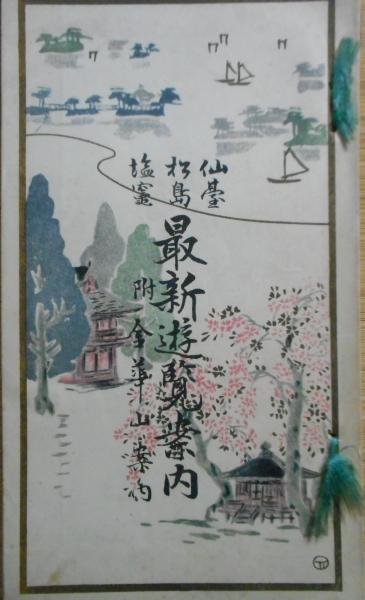 仙臺
松島
塩竈
最新遊覽案内
附金華山案内